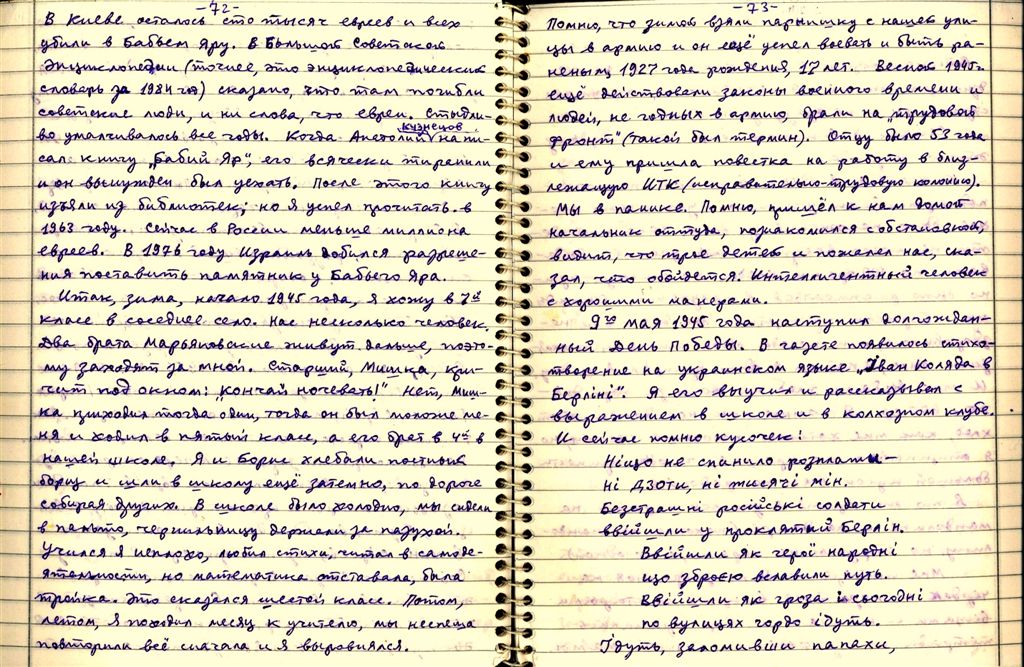 -72-
В Киеве осталось сто тысяч евреев и всех
убили в Бабьем Яру. В Большой Советской
Энциклопедии (точнее, это энциклопедический
словарь за 1984 год) сказано, что там погибли
советские люди, и ни слова, что евреи. Стыдли-
во умалчивалось все годы. Когда Анатолий Кузнецов напи-
сал книгу „Бабий Яр", его всячески тиранили
и он вынужден был уехать. После этого книгу
изъяли из библиотек; но я успел прочитать в
1963 году. Сейчас в России меньше миллиона
евреев. В 1976 году Израиль добился разреше-
ния поставить памятник у Бабьего Яра.
Итак, зима, начало 1945 года, я хожу в 7й
класс в соседнее село. Нас несколько человек.
Два брата Марьяновские живут дальше, поэто-
му заходят за мной. Старший, Мишка, кри-
чит под окном: „Кончай ночевать!" Нет, Миш-
ка приходил тогда один, тогда он был моложе ме-
ня и ходил в пятый класс, а его брат в 4й в
нашей школе. Я и Борис хлебали постный
борщ и шли в школу ещё затемно, по дороге
собирая других. В школе было холодно, мы сидели
в пальто, чернильницу держали за пазухой.
Учился я неплохо, любил стихи, читал в самоде-
ятельности, но математика отставала, была
тройка. Это сказался шестой класс. Потом,
летом, я походил месяц к учителю, мы неспеша
повторили всё сначала и я выровнялся.
-73-
Помню, что зимой взяли парнишку с нашей ули-
цы в армию и он ещё успел воевать и быть ра-
неным, 1927 года рождения, 17 лет. Весной 1945г.
ещё действовали законы военного времени и
людей, не годных в армию, брали на „трудовой
фронт" (такой был термин). Отцу было 53 года
и ему пришла повестка на работу в близ-
лежащую ИТК (исправительно-трудовую колонию).
Мы в панике. Помню, пришёл к нам домой
начальник оттуда, познакомился с обстановкой,
видит, что трое детей и пожалел нас, ска-
зал, что обойдется. Интеллигентный человек
с хорошими манерами.
9го мая 1945 года наступил долгождан-
ный День Победы. В газете появилось стихо-
творение на украинском языке „Iван Коляда в
Берлiнi". Я его выучил и рассказывал с
выражением в школе и в колхозном клубе.
И сейчас помню кусочек:
Нiщо не спинило розплати –
нi дзоти, нi тисячi мiн.
Безстрашнi росiйськi солдати
ввiйшли у проклятий Берлiн.
Ввiйшли як герої народнi
що зброєю вславили путь.
Ввiйшли як гроза i сьогоднi
по вулицях гордо iдуть.
Iдуть, заломивши папахи,